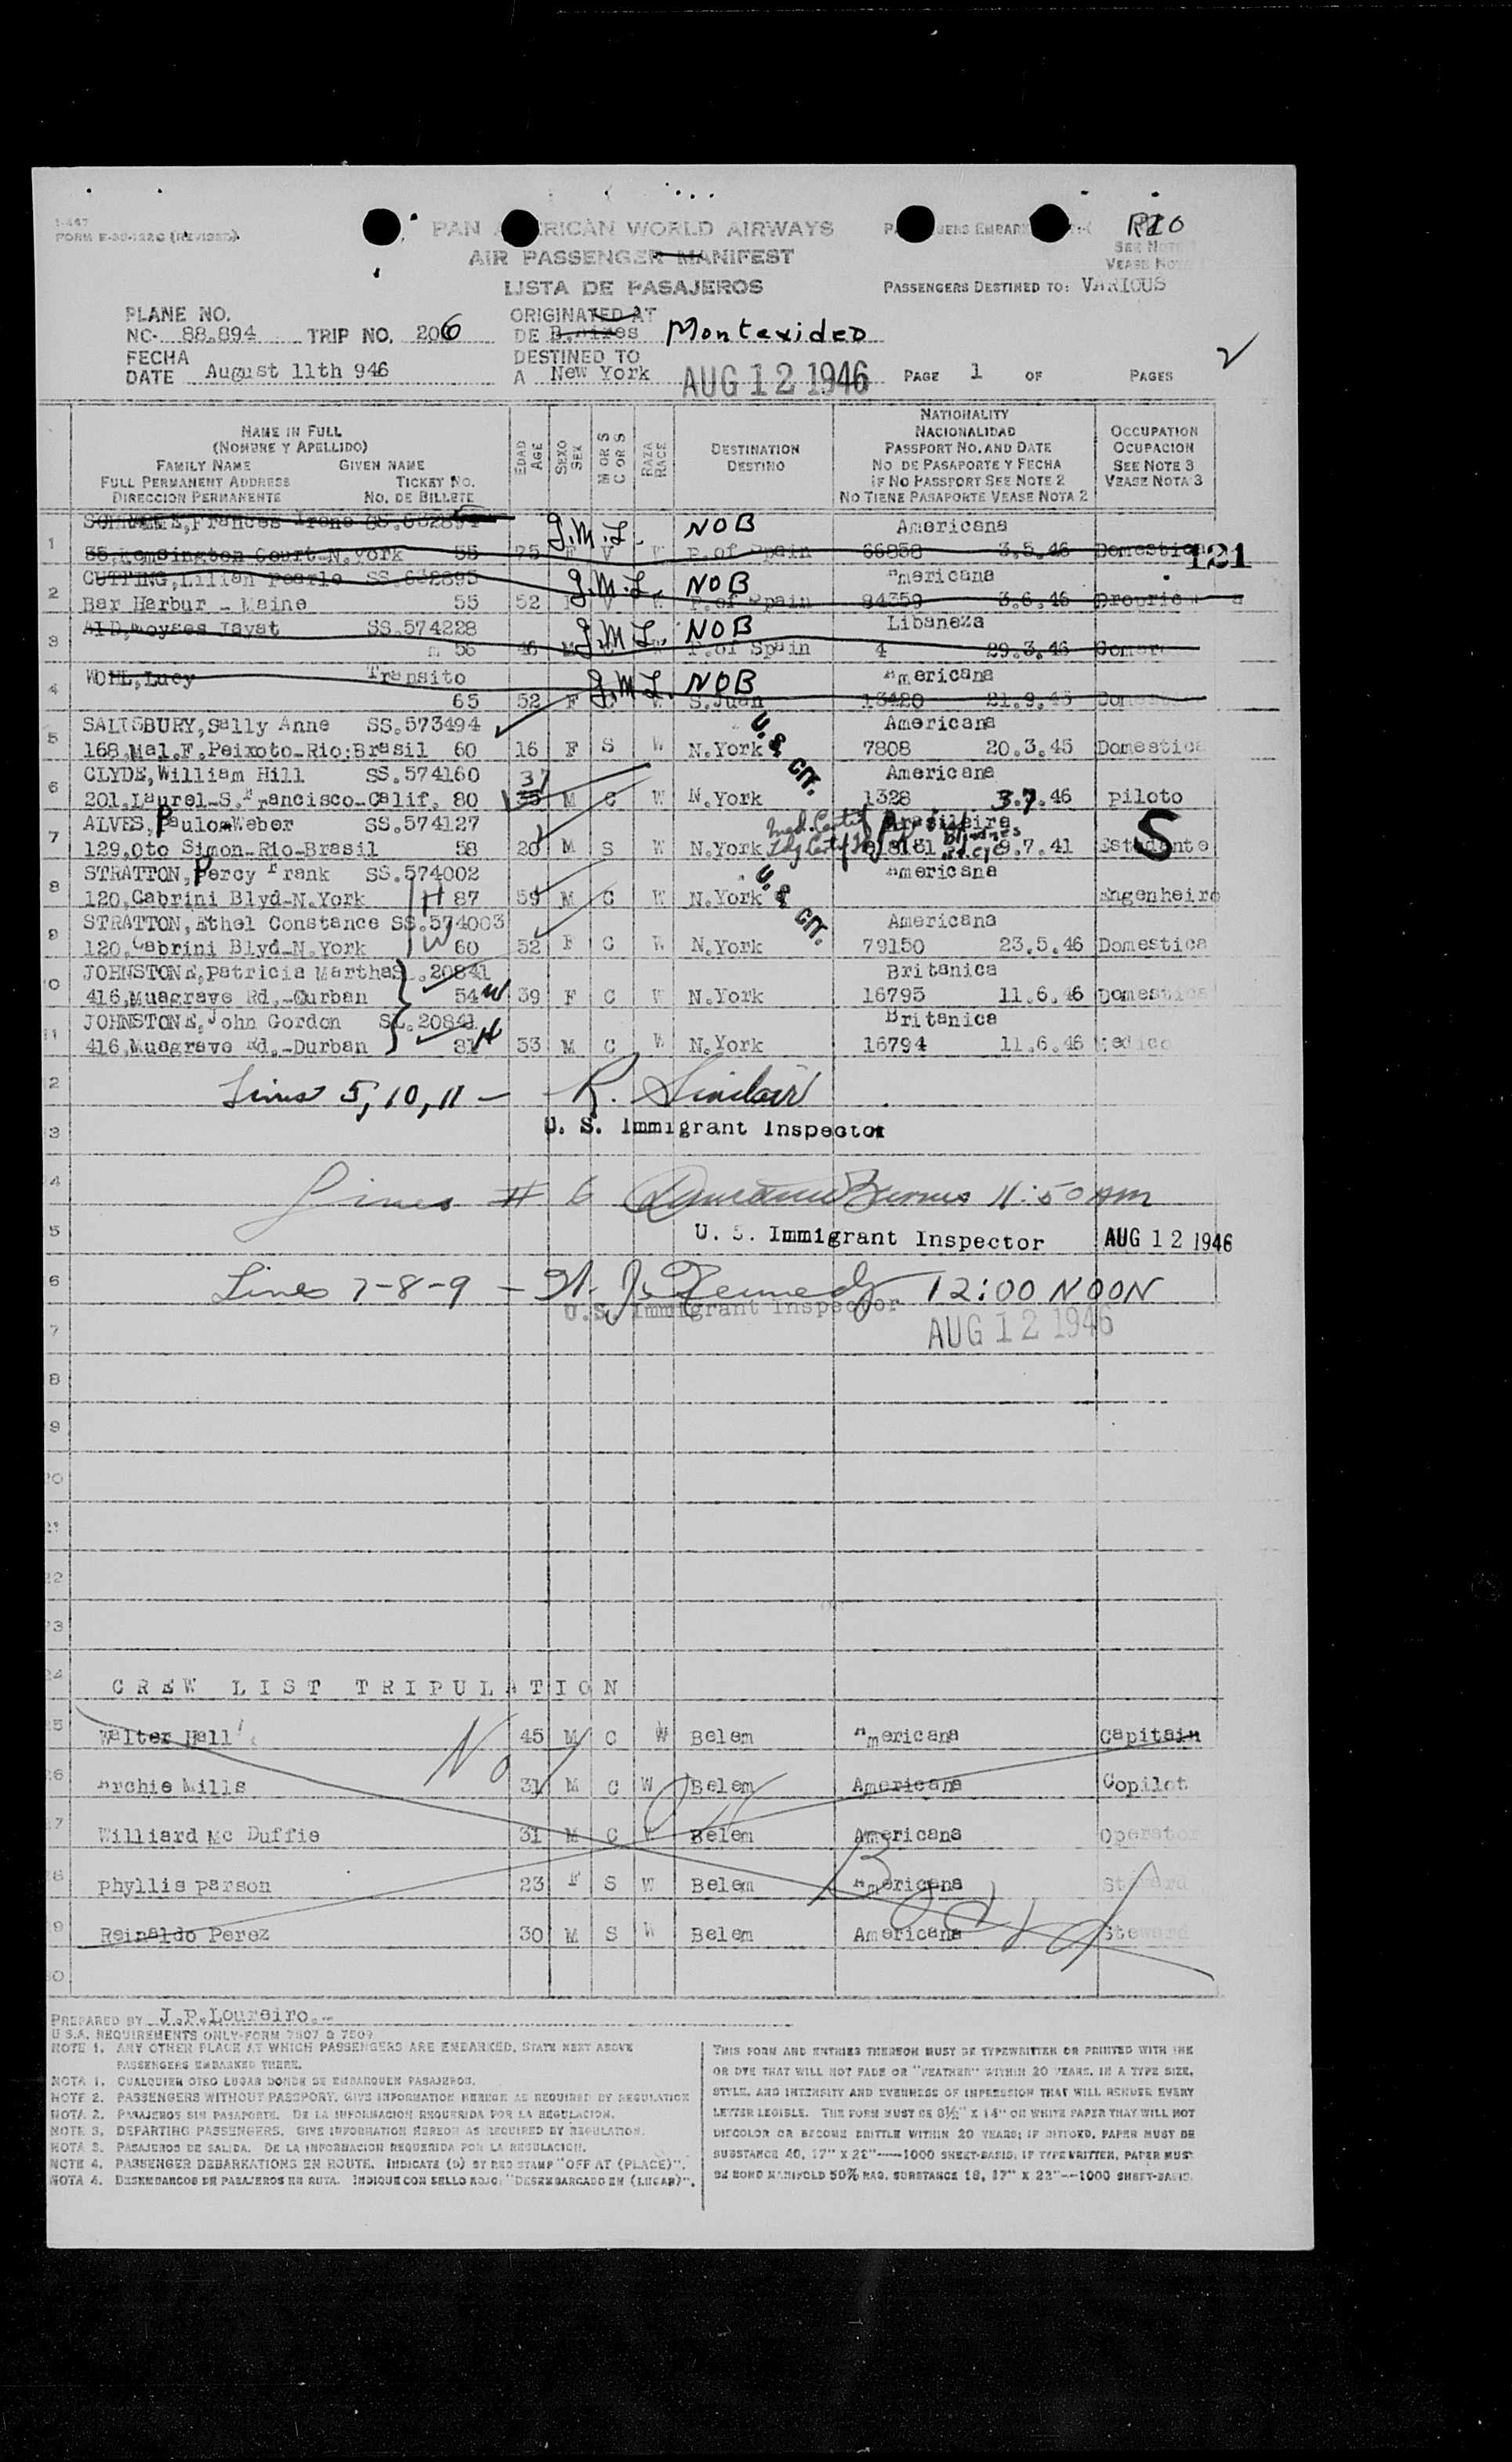 I-447
FORM E-30-122C (REVISED)
PAN AMERICAN WORLD AIRWAYS
AIR PASSENGER MANIFEST
LISTA DE PASAJEROS
RIO
SEE NOTE
VEASE NOTA
PASSENGERS DESTINED TO: VARIOUS
PLANE NO.
NC- 88.894 TRIP NO. 206
ORIGINATED AT
DE B.Aires Montevideo
FECHA
DATE August 11th 946
DESTINED TO
A New York AUG 12 1946 PAGE 1 OF PAGES
NAME IN FULL
(NOMBRE Y APELLIDO)
FAMILY NAME GIVEN NAME
FULL PERMANENT ADDRESS TICKET NO.
DIRECCION PERMANENTE NO. DE BILLETE
EDAD AGE
SEXO SEX
M OR S C OR S
RAZA RACE
DESTINATION
DESTINO
NATIONALITY
NACIONALIDAD
PASSPORT NO. AND DATE
NO DE PASAPORTE Y FECHA
IF NO PASSPORT SEE NOTE 2
NO TIENE PASAPORTE VEASE NOTA 2
OCCUPATION
OCUPACION
SEE NOTE 3
VEASE NOTA 3
Frances Irene G.M.L. NOB Americana
1 55 75 F V W P.of Spain 66858 3.5.46 Domestica 121
CUTTING,Lilian Pearle SS.632895 G.M.L. NOB Americana
2 Bar Harbur - Maine 55 52 F V W P.of Spain 84359 3.6.46
Moyses Jayat SS.574228 G.M.L. NOB Libaneza
3 56 46 M P.of Spain 4 29.3.46
WOHL,Lucy Transito G.M.L. NOB Americana
4 65 52 F C W S.Juan 13420 21.9.45
SALISBURY,Sally Anne SS.573494 U.S. CIT. Americana
5 168,Mal.F.Peixoto-Rio:Brasil 60 16 F S W N.York 7808 20.3.45 Domestica
CLYDE,William Hill SS.574160 37 Americana
6 201,Laurel-S.Francisco-Calif. 80 35 M C W N.York 1328 3.7.46 piloto
ALVES,Paulo Weber SS.574127 Med. Certif Brasileira S
7 129,Oto Simon-Rio-Brasil 58 20 M S W N.York 9.7.41 Estudante
STRATTON,Percy Frank SS.574002 U.S. CIT. Americana
8 120,Cabrini Blvd-N.York H 87 59 M C W N.York Engenheiro
STRATTON,Ethel Constance SS.574003 Americana
9 120,Cabrini Blyd-N.York W 60 52 F C W N.York 79150 23.5.46 Domestica
JOHNSTONE,Patricia Martha 20841 Britanica
10 416,Musgrave Rd,-Durban 54 W 39 F C W N.York 16795 11.6.46 Domestica
JOHNSTONE,John Gordon 20841 Britanica
11 416,Musgrave Rd,-Durban 81 H 53 M C W N.York 16794 11.6.46 Medico
2 Lines 5, 10, 11 - R. Sinclair
3 U. S. Immigrant Inspector
4 Lines # 6 11:50 AM
5 U. S. Immigrant Inspector AUG 12 1946
6 Lines 7-8-9 - Kennedy 12:00 NOON
U.S. Immigrant Inspector
7 AUG 12 1946
8
9
20
21
22
23
24 CREW LIST TRIPULATION
25 Walter Hall 45 M C W Belem Americana Capitain
26 Archie Mills No 31 M C W Belem Americana Copilot
27 Williard Mc Duffie 31 M C W Belem Americana Operator
On Board
28 Phyllis parson 23 F S W Belem Americana Steward
29 Reinaldo Perez 30 M S W Belem Americana Steward
30
PREPARED BY J.P.Loureiro.-
U.S.A. REQUIREMENTS ONLY-FORM 7507 & 7509
NOTE 1. ANY OTHER PLACE AT WHICH PASSENGERS ARE EMBARKED, STATE NEXT ABOVE
PASSENGERS EMBARKED THERE.
NOTA 1. CUALQUIER OTRO LUGAR DONDE SE EMBARQUEN PASAJEROS.
NOTE 2. PASSENGERS WITHOUT PASSPORT, GIVE INFORMATION HEREON AS REQUIRED BY REGULATION
NOTA 2. PASAJEROS SIN PASAPORTE. DE LA INFORMACION REQUERIDA POR LA REGULACION.
NOTE 3. DEPARTING PASSENGERS. GIVE INFORMATION HEREON AS REQUIRED BY REGULATION.
NOTA 3. PASAJEROS DE SALIDA. DE LA INFORMACION REQUERIDA POR LA REGULACION.
NOTE 4. PASSENGER DEBARKATIONS EN ROUTE. INDICATE (D) BY RED STAMP "OFF AT (PLACE)".
NOTA 4. DESEMBARCOS DE PASAJEROS EN RUTA. INDIQUE CON SELLO ROJO: "DESEMBARCADO EN (LUGAR)".
THIS FORM AND ENTRIES THEREON MUST BE TYPEWRITTEN OR PRINTED WITH INK
OR DYE THAT WILL NOT FADE OR "FEATHER" WITHIN 20 YEARS, IN A TYPE SIZE,
STYLE, AND INTENSITY AND EVENNESS OF IMPRESSION THAT WILL RENDER EVERY
LETTER LEGIBLE. THE FORM MUST BE 8½" X 14" ON WHITE PAPER THAT WILL NOT
DISCOLOR OR BECOME BRITTLE WITHIN 20 YEARS; IF DITTOED, PAPER MUST BE
SUBSTANCE 40, 17" X 22"----1000 SHEET-BASIS; IF TYPEWRITTEN, PAPER MUST
BE BOND MANIFOLD 50% RAG, SUBSTANCE 18, 17" X 22"--1000 SHEET-BASIS.